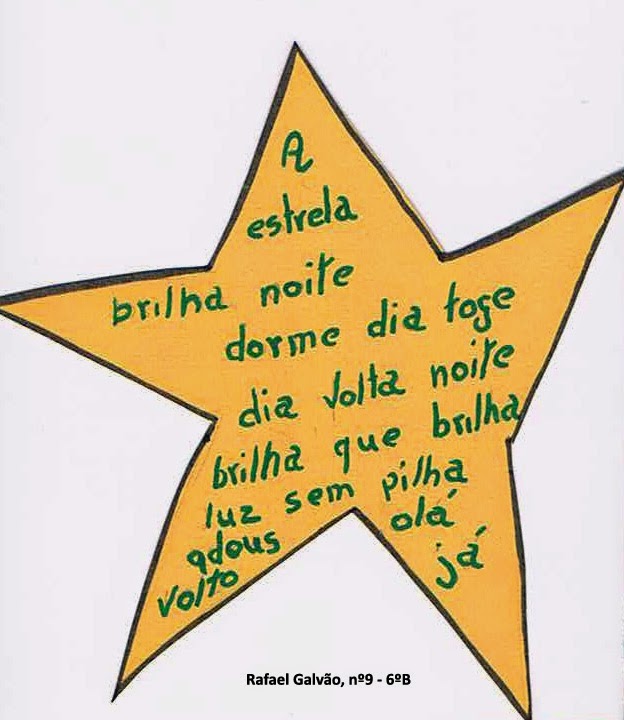 A
estrela
brilha noite
dorme dia foge
dia volta noite
brilha que brilha
luz sem pilha
adous olá
volto já
Rafael Galvão, nº9 - 6ºB